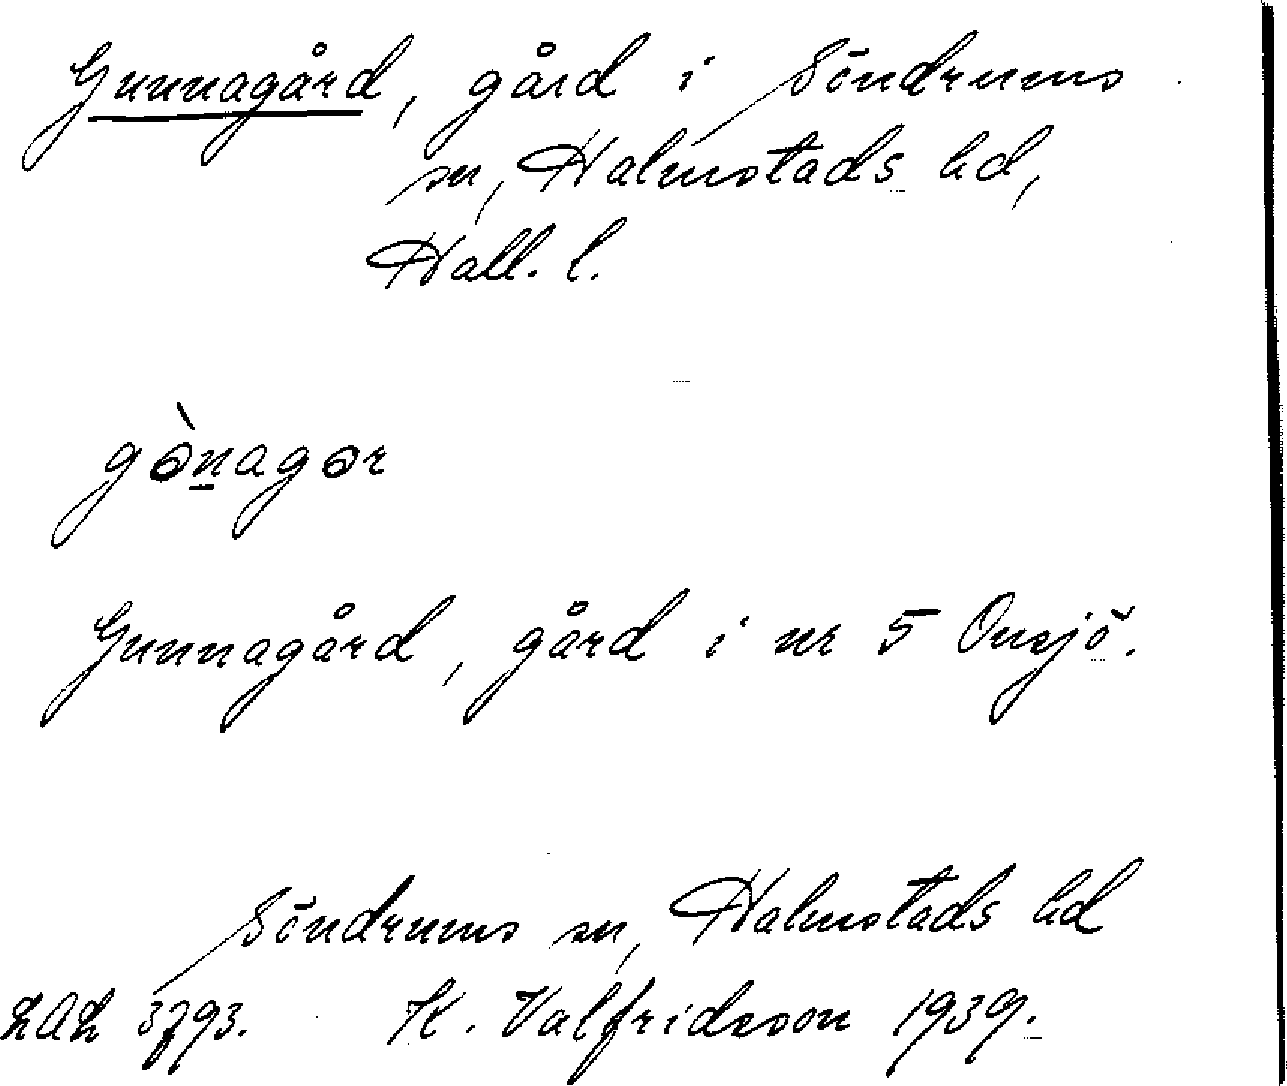 Gunnagård, gård i Söndrums
sn, Halmstads hd,
Hall. l.
gò̱nagor
Gunnagård, gård i nr 5 Onsjö.
Söndrums sn, Halmstads hd
LAL 3793. K. Valfridsson 1939.